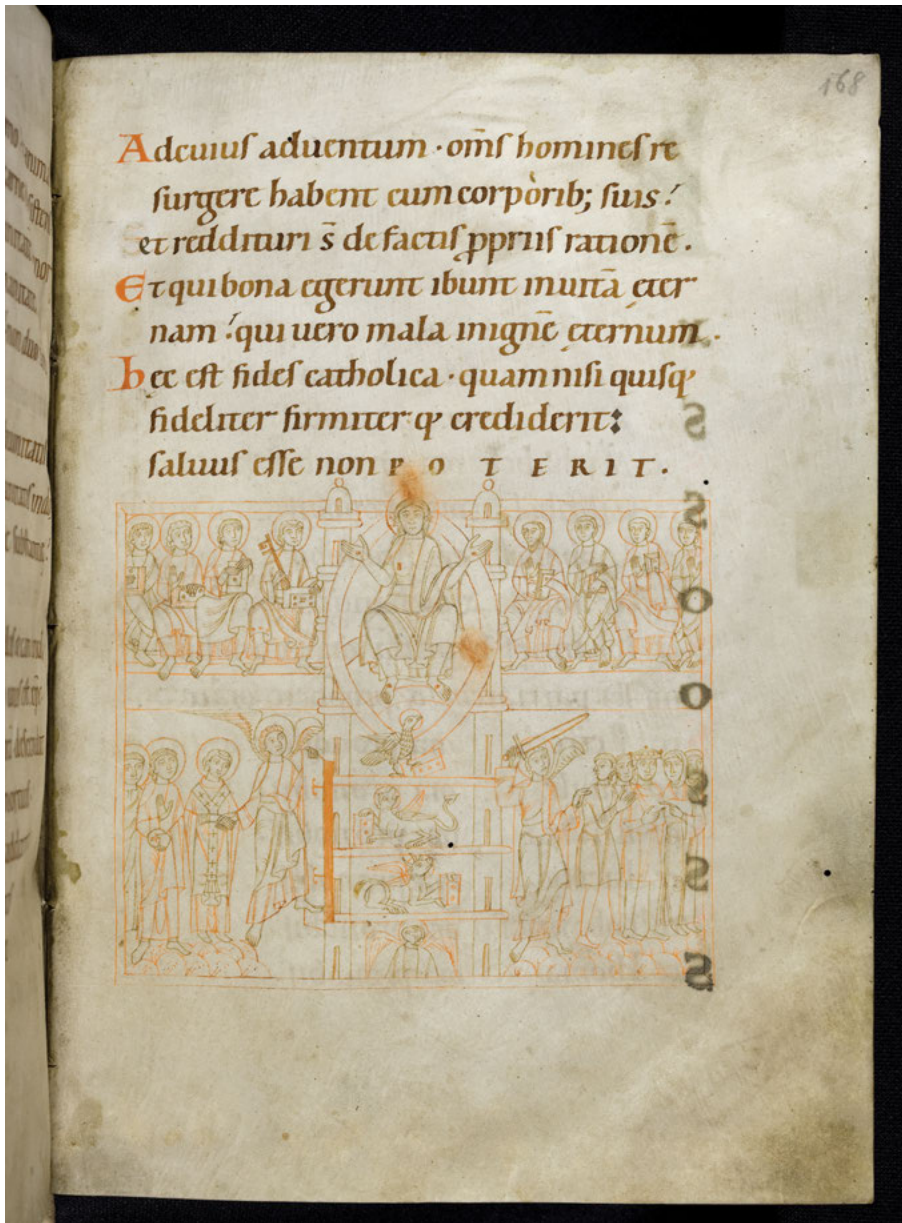 168
Adcuius aduentum · om̄s homines re
surgere habent cum corporib; suis :
et reddituri s̄ de factis ꝓpriis rationē .
Et qui bona egerunt ibunt inuitā ęter
nam : qui uero mala inignē ęternum .
hec est fides catholica · quam nisi quisq;
fideliter firmiter q; crediderit :
saluus esse non POTERIT .